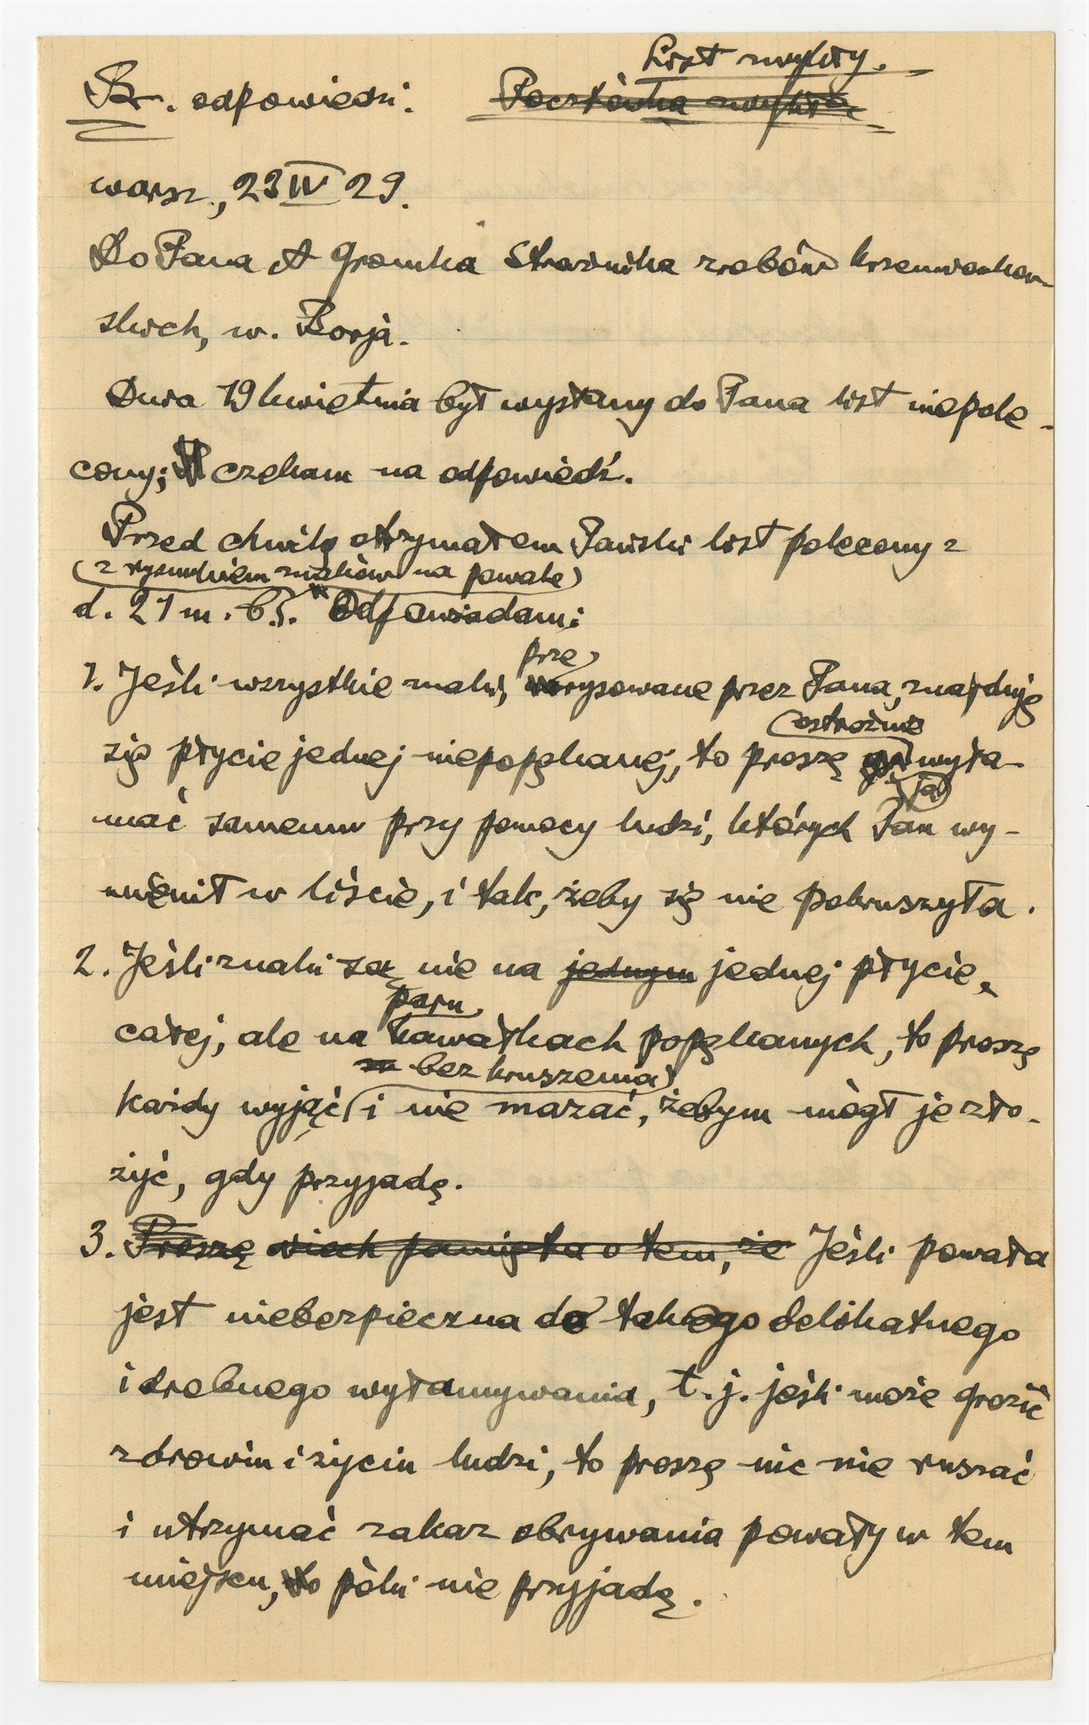 List zwykły.
Br. odpowiedzi. Pocztówka zwykła
Warsz., 23 IV 29.
Do Pana A Gromka Strażnika zrobów krzemionkow-
skich, w. Borja.
Dnia 19 kwietnia był wysłany do Pana list niepole-
cony; czekam na odpowiedź.
Przed chwilą otrzymałem Pański list polecony z
(z rysunkiem znaków na powale)
d. 21 m. b. Odpowiadam:
prze
1. Jeśli wszystkie znaki, rysowane przez Pana, znajdują
(ostrożnie
się płycie jednej niepopękanej, to proszę wyła-
ją
mać samemu przy pomocy ludzi, których Pan wy-
mienił w liście, i tak, żeby się nie pokruszyła.
2. Jeśli znaki są nie na jednym jednej płycie,
paru
całej, ale na kawałkach popękanych, to proszę
bez kruszenia)
każdy wyjąć i nie mazać, żebym mógł je zło-
żyć, gdy przyjadę.
3. Proszę niech pamięta o tem, że Jeśli powała
jest niebezpieczna do takiego delikatnego
i drobnego wyłamywania, t. j. jeśli może grozić
zdrowiu i życiu ludzi, to proszę nic nie ruszać
i utrzymać zakaz obrywania powały w tem
miejscu, póki nie przyjadę.